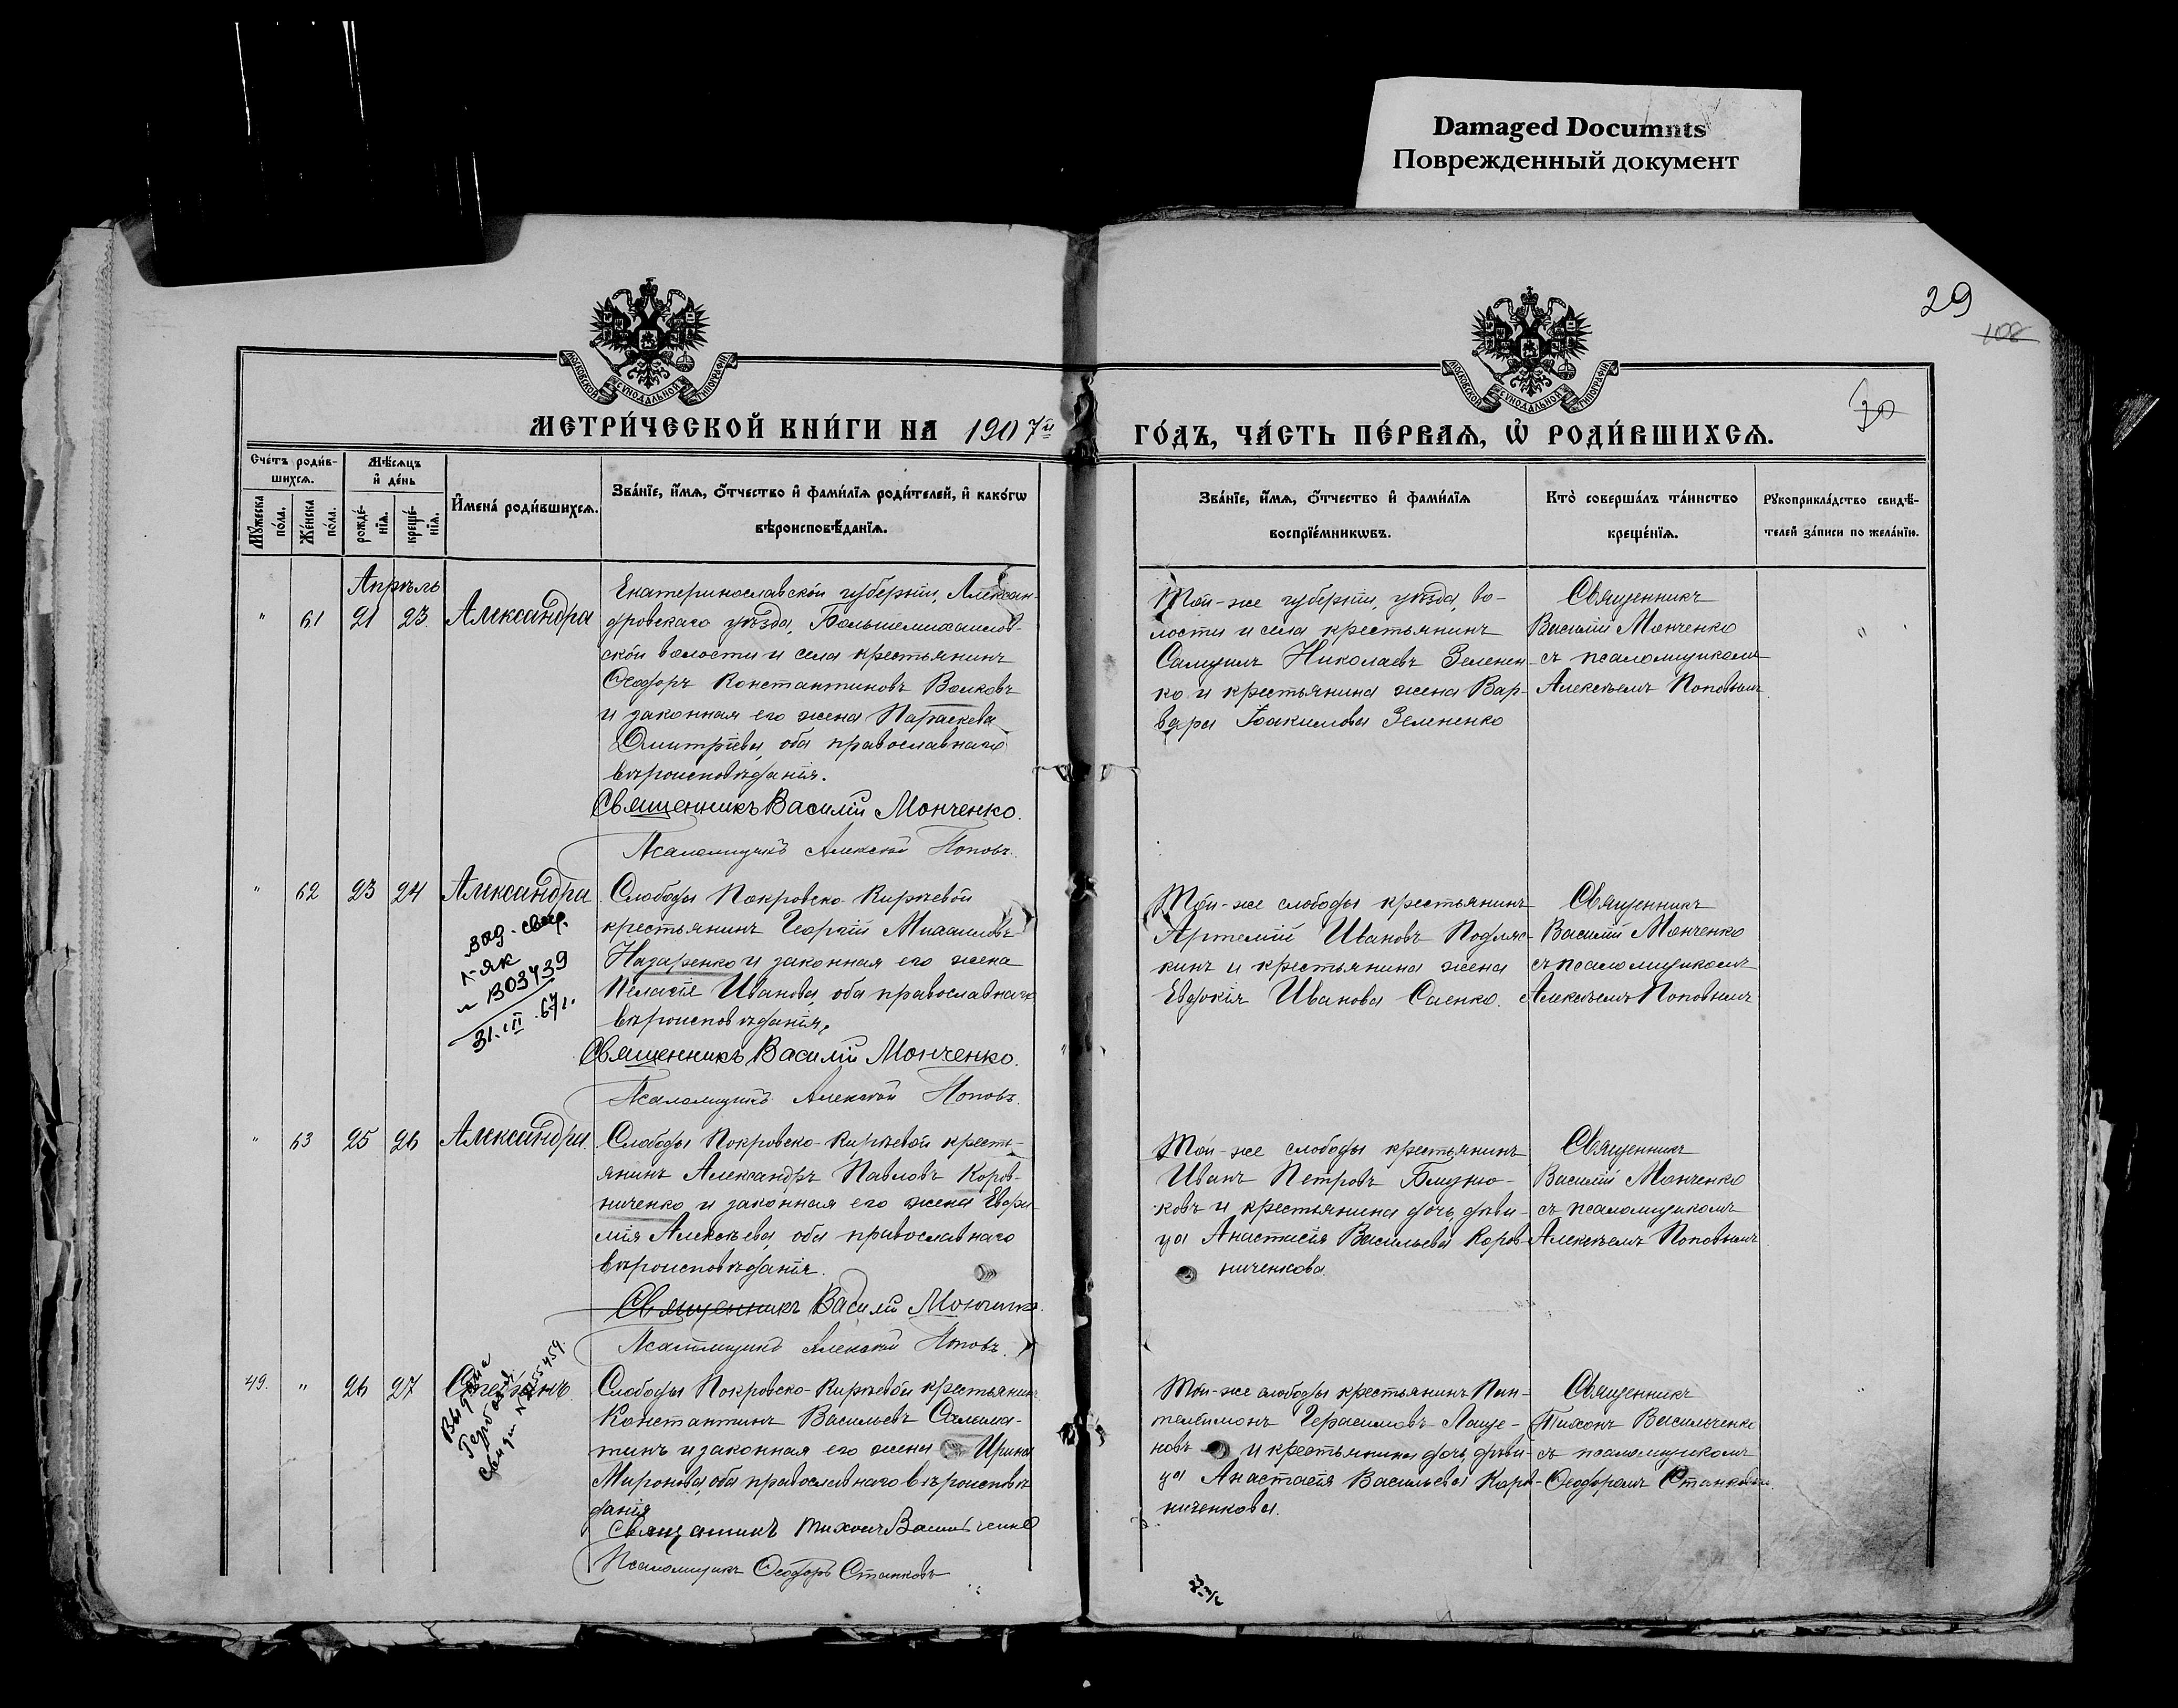 Damaged Documnts
Поврежденный документ
29
108
30
МОСКОВСКОЙ СѴНОДАЛЬНОЙ ТИПОГРАФІИ
МОСКОВСКОЙ СѴНОДАЛЬНОЙ ТИПОГРАФІИ
МЕТРИ́ЧЕСКОЙ КНИ́ГИ НА 1907й ГО́ДЪ, ЧА́СТЬ ПЕ́РВАѦ, Ѡ҆ РОДИ́ВШИХСѦ.
Сче́тъ роди́в-
шихсѧ.
Мꙋ́жеска по́ла.
Же́нска по́ла.
Мѣ́сѧцъ
и҆ де́нь
рожде́-
нїѧ.
креще́-
нїѧ.
И҆мена̀ роди́вшихсѧ.
Зва́нїе, и҆́мѧ, ѻ҆́тчество и҆ фами́лїѧ роди́телей, и҆ како́гѡ
вѣроисповѣ́данїѧ.
Зва́нїе, и҆́мѧ, ѻ҆́тчество и҆ фами́лїѧ
воспрїе́мникѡвъ.
Кто̀ соверша́лъ та́инство
креще́нїѧ.
Рꙋкоприкла́дство свидѣ́-
телей за́писи по жела́нїю.
Апрѣль
" 61 21 23. Александра
Екатеринославской губерніи, Алексан-
дровскаго уѣзда, Большемихайлов-
ской волости и села крестьянинъ
Ѳеодоръ Константиновъ Волковъ
и законная его жена Параскева
Дмитріева, оба православнаго
вѣроисповѣданія.
Священникъ Василій Монченко.
Псаломщикъ Алексѣй Поповъ.
Той-же губерніи, уѣзда, во-
лости и села крестьянинъ
Самуилъ Николаевъ Зеленен-
ко и крестьянина жена Вар-
вара Іоакимова Зелененко
Священникъ
Василій Монченко
съ псаломщикомъ
Алексѣемъ Поповымъ.
" 62 23 24 Александра
вад. свид.
ВОЗ439
31.III.67г.
Слободы Покровско-Кирѣевой
крестьянинъ Георгій Михаиловъ
Назаренко и законная его жена
Пелагія Иванова, оба православнаго
вѣроисповѣданія.
Священникъ Василій Монченко.
Псаломщикъ Алексѣй Поповъ.
Той-же слободы крестьянинъ
Артемій Ивановъ Подляс-
кинъ и крестьянина жена
Евдокія Иванова Саенко.
Священникъ
Василій Монченко
съ псаломщикомъ
Алексѣемъ Поповымъ
" 63 25 26 Александра.
Слободы Покровско-Кирѣевой кресть-
янинъ Александръ Павловъ Коров-
ниченко и законная его жена Евфи-
мія Алексѣева, оба православнаго
вѣроисповѣданія.
Священникъ Василій Монченко.
Псаломщикъ Алексѣй Поповъ.
Той-же слободы крестьянинъ
Иванъ Петровъ Близню-
ковъ и крестьянина дочь, дѣви-
ца Анастасія Васильева Коров-
ниченкова.
Священникъ
Василій Монченко
съ псаломщикомъ
Алексѣемъ Поповымъ
49. " 26 27 Стефанъ.
Выдана
Гербовое
свид. №
Слободы Покровско-Кирѣевой крестьянинъ
Константинъ Васильевъ
тинъ и законная его жена Ирина
Миронова, оба православнаго вѣроисповѣ-
данія
Священникъ Тихонъ Васильченко
Псаломщикъ Ѳеодоръ Станковъ
Той-же слободы крестьянинъ Пан-
телеимонъ Герасимовъ Лаще-
новъ и крестьянина дочь, дѣви-
ца Анастасія Васильева Коров-
ниченкова.
Священникъ
Тихонъ Васильченко
съ псаломщикомъ
Ѳеодоромъ Станковымъ.